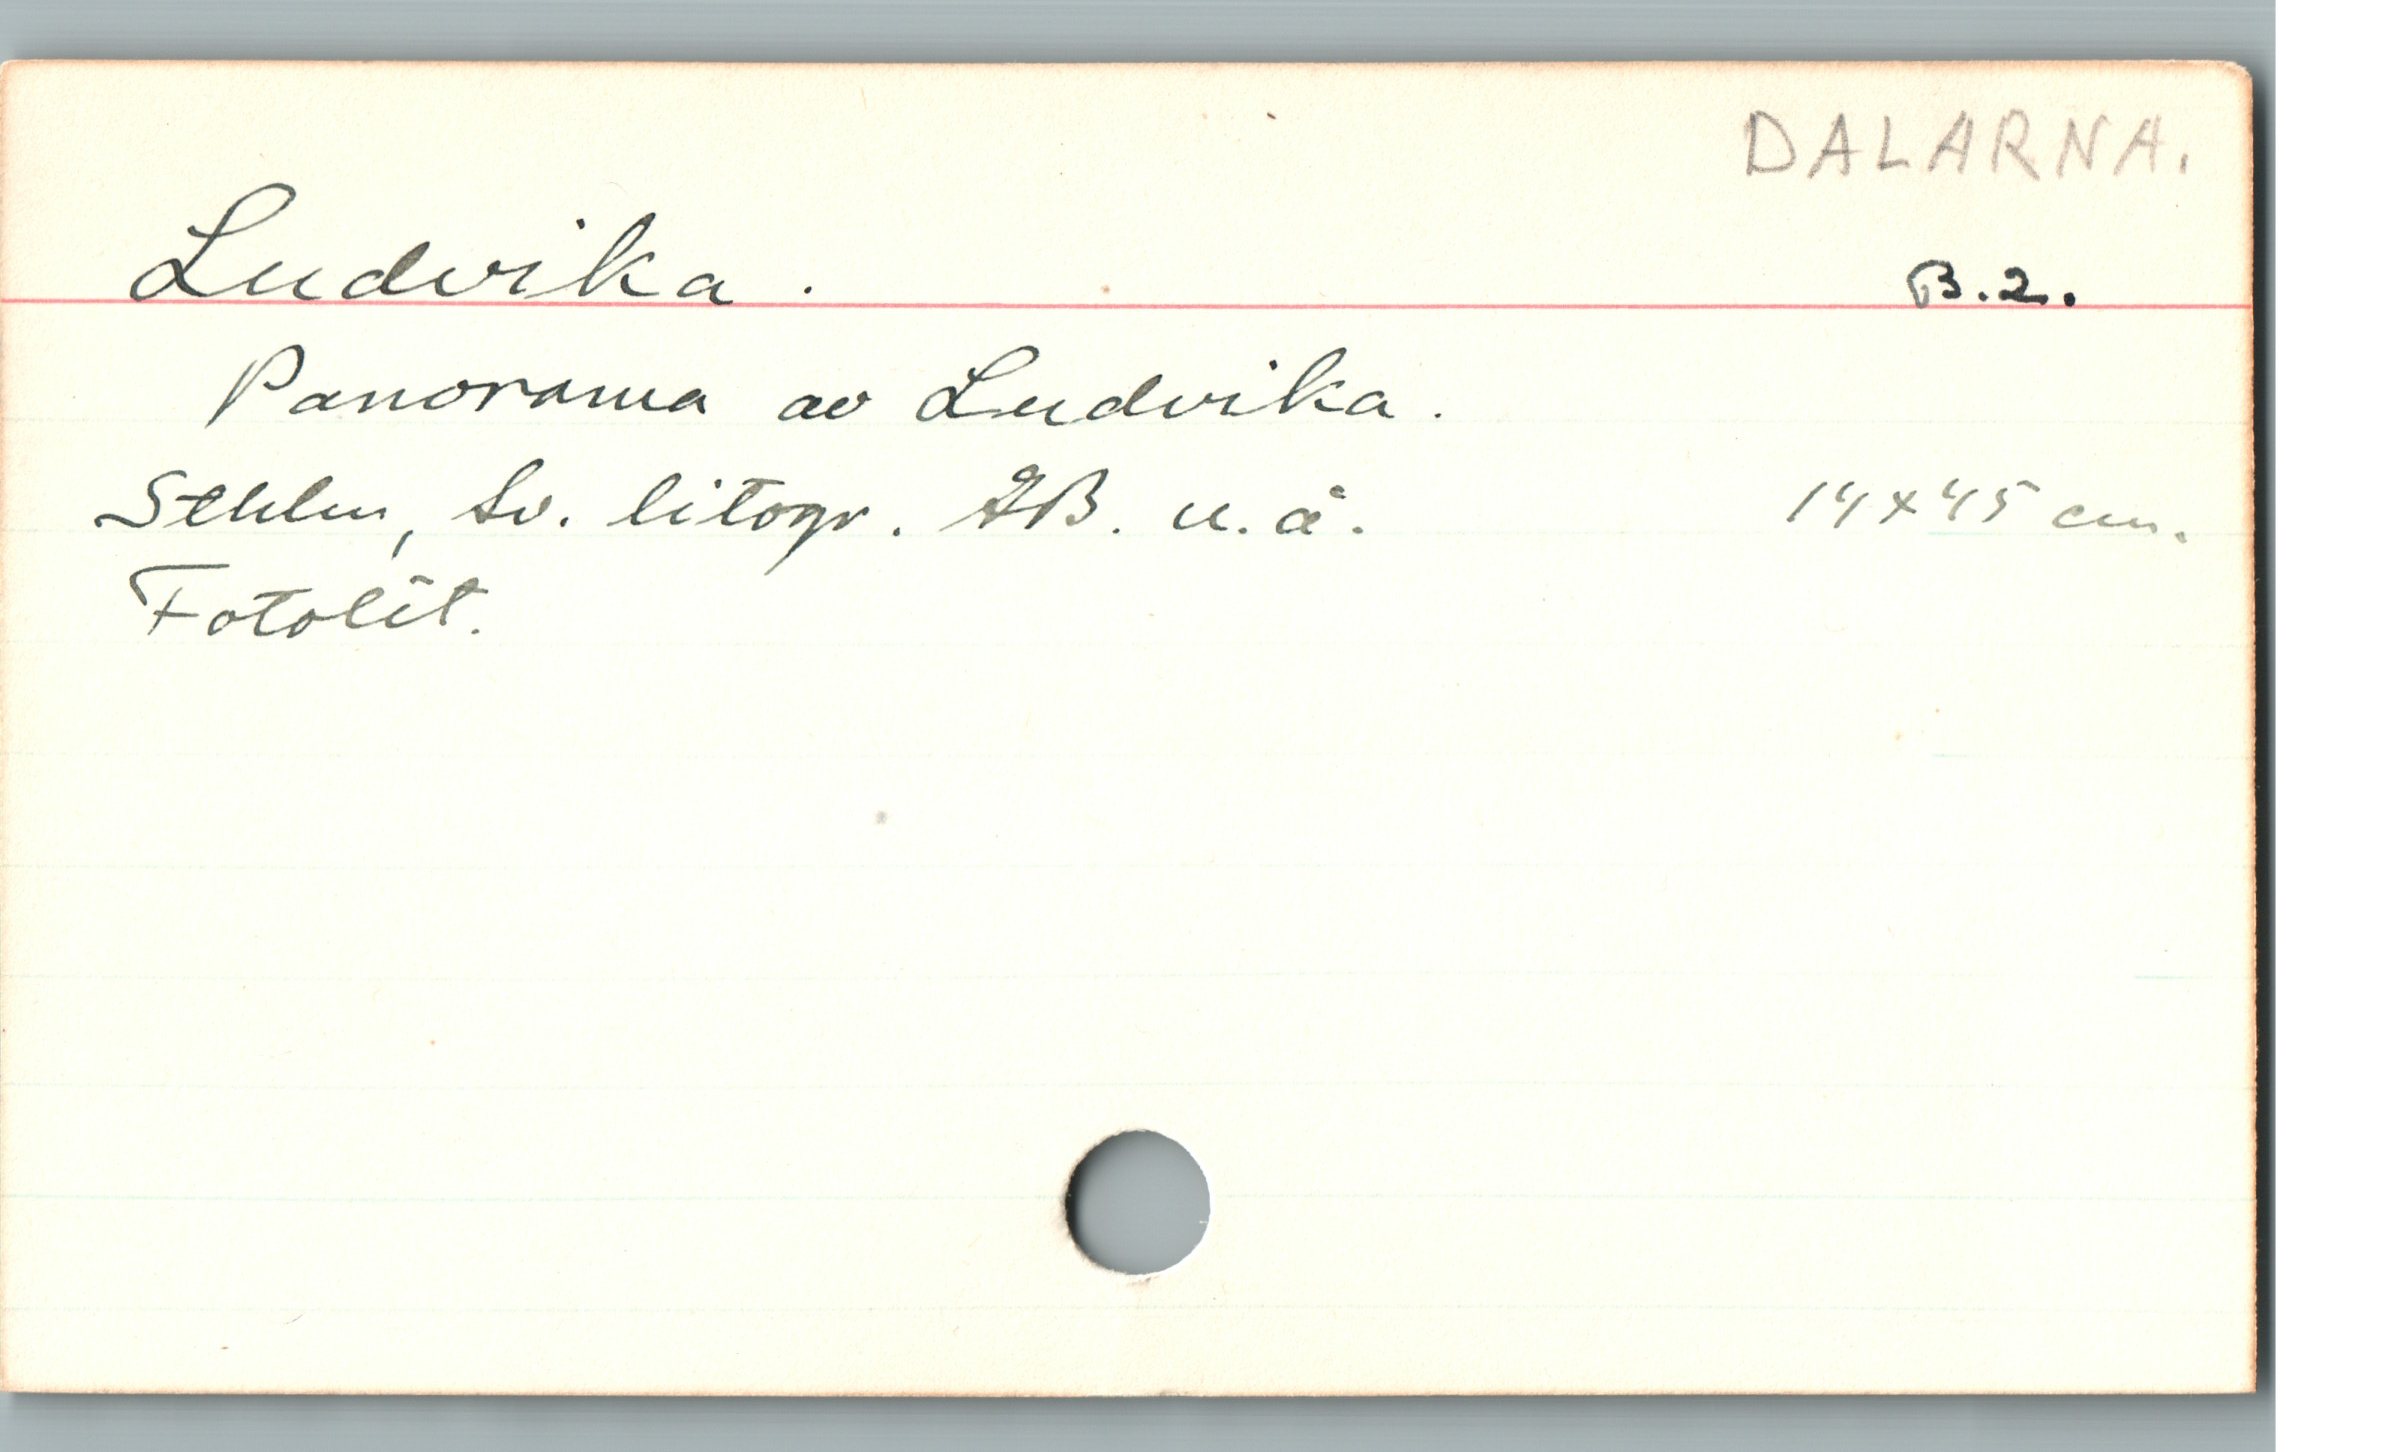 DALARNA.
Ludvika. B.2.
Panorama av Ludvika.
Sthlm, Sv. litogr. AB. u.å. 14x45 cm.
Fotolit.